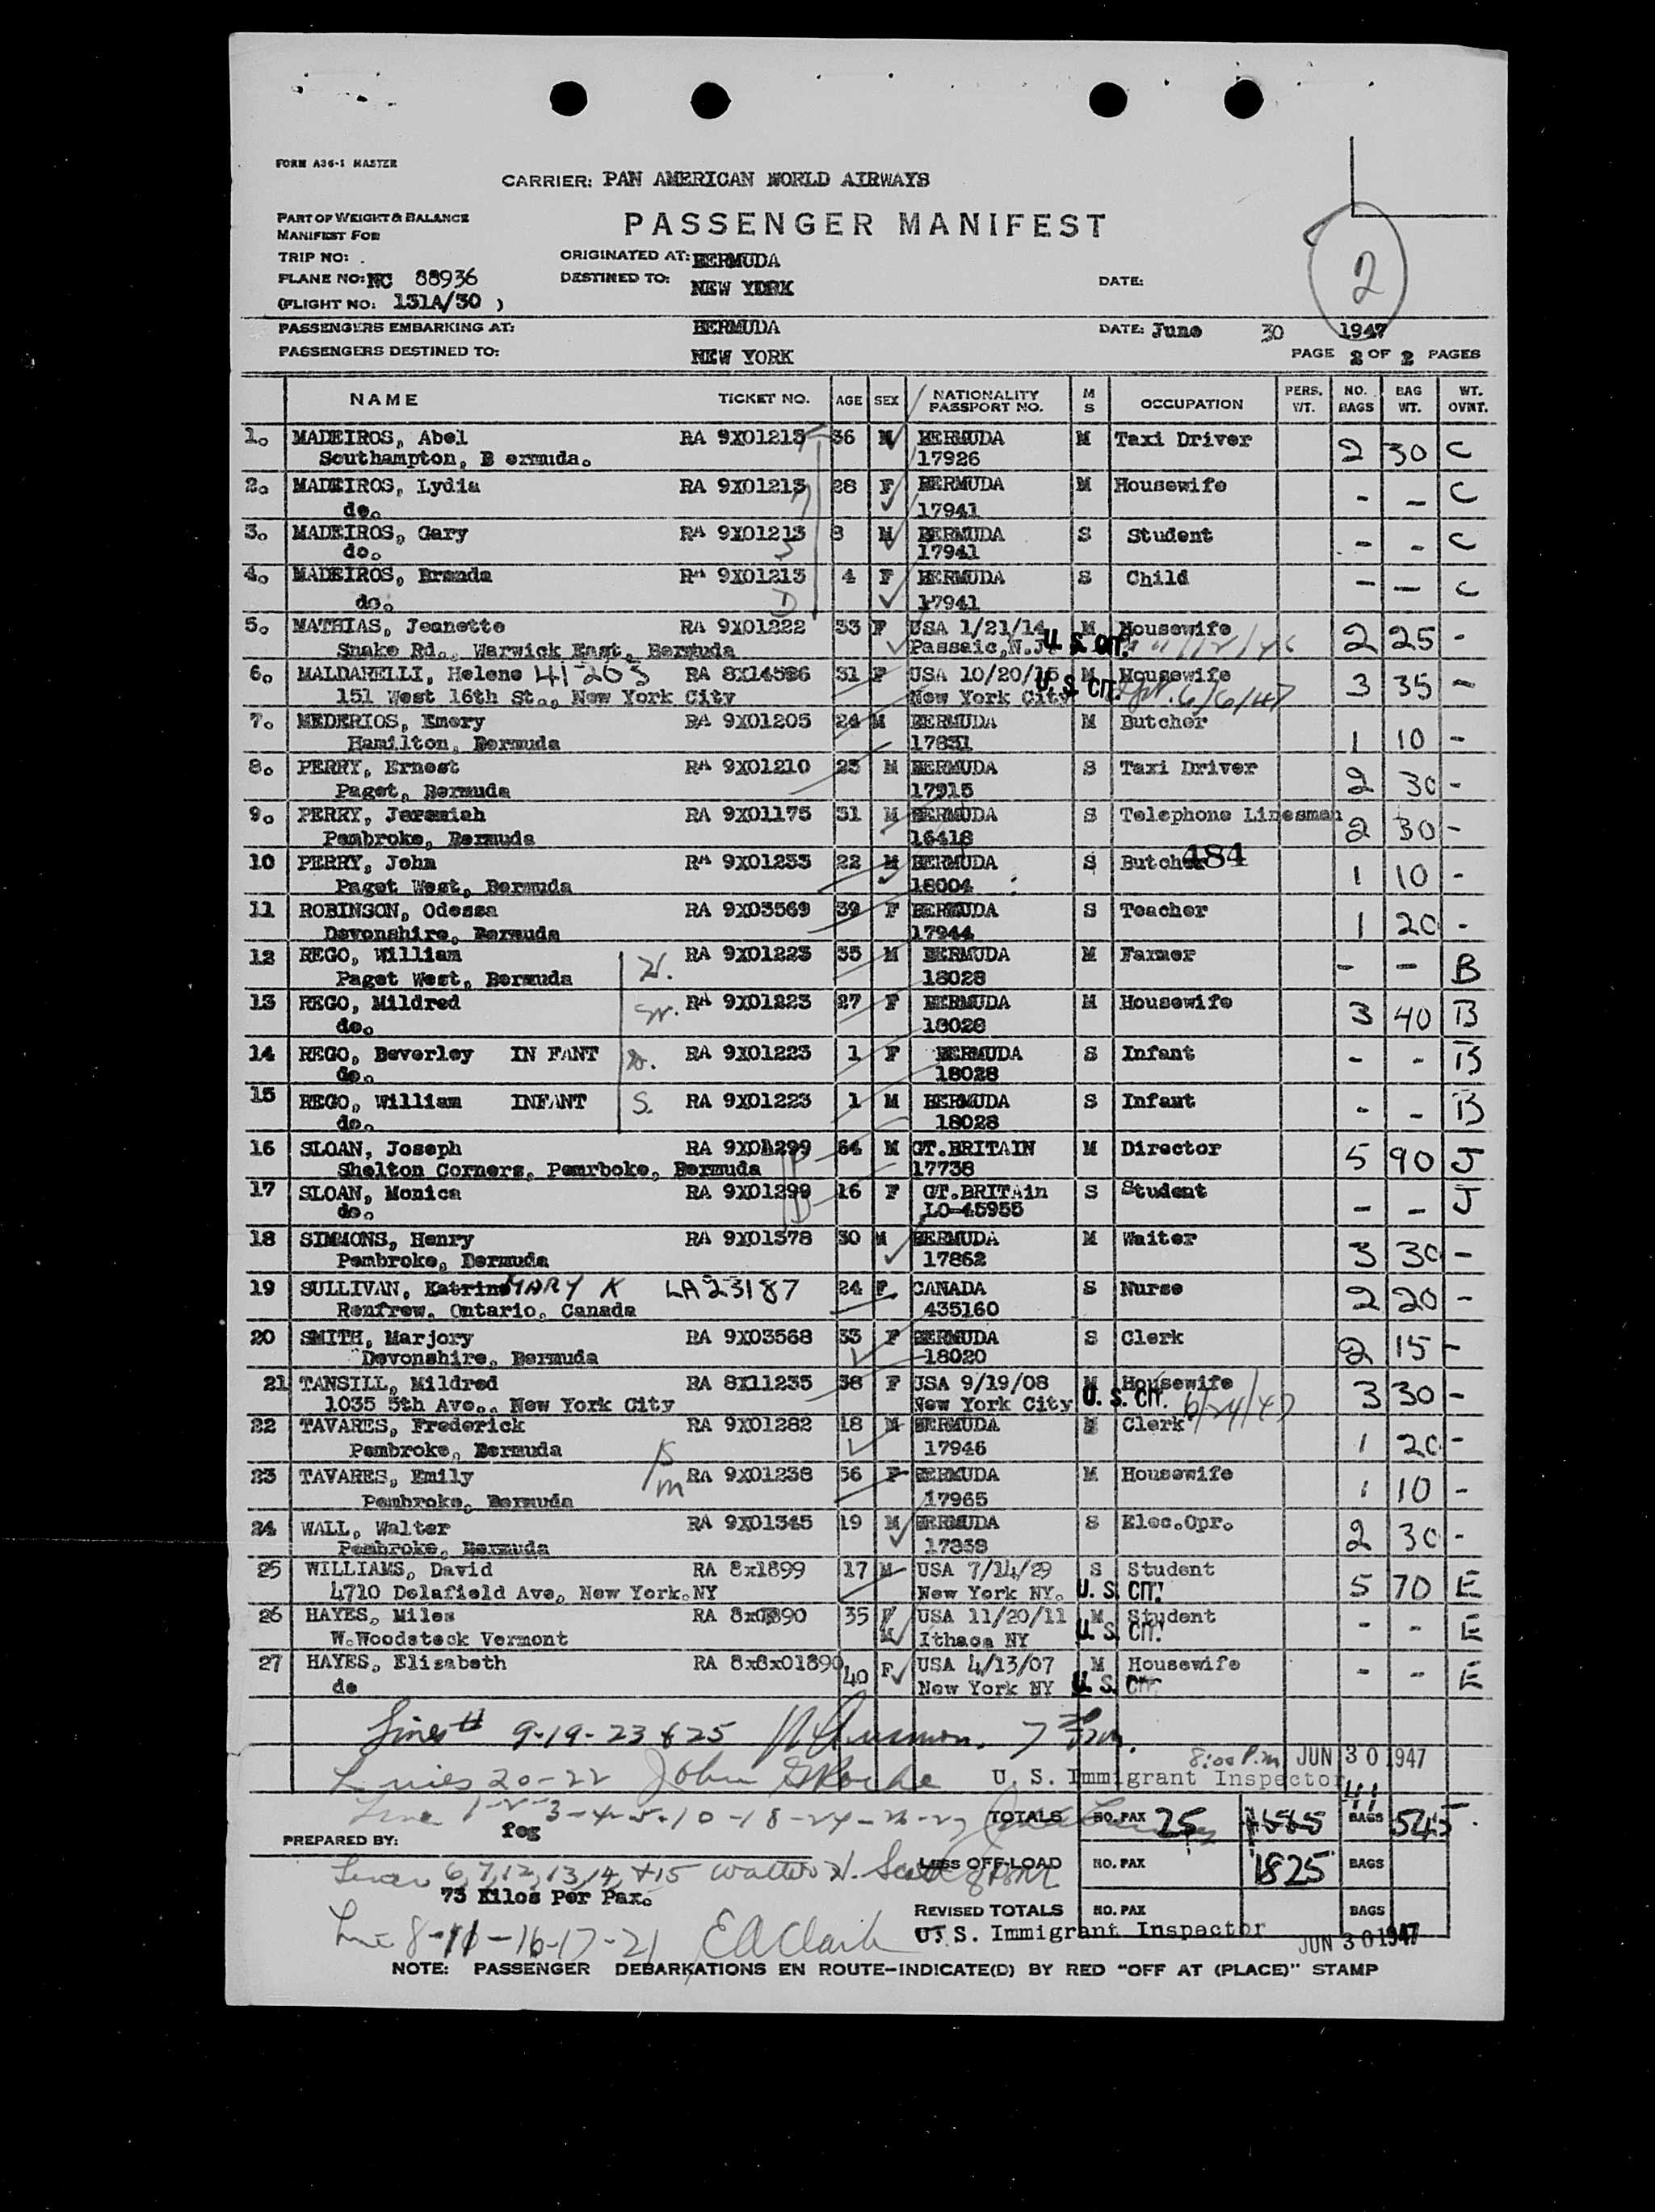 FORM A36-1 MASTER
CARRIER: PAN AMERICAN WORLD AIRWAYS
PART OF WEIGHT & BALANCE
MANIFEST FOR
PASSENGER MANIFEST
TRIP NO: .
ORIGINATED AT: BERMUDA
PLANE NO: NC 88936
DESTINED TO: NEW YORK
DATE:
2
(FLIGHT NO: 131A/30 )
PASSENGERS EMBARKING AT: BERMUDA
DATE: June 30 1947
PASSENGERS DESTINED TO: NEW YORK
PAGE 2 OF 2 PAGES
NAME TICKET NO. AGE SEX NATIONALITY PASSPORT NO. M S OCCUPATION PERS. WT. NO. BAGS BAG WT. WT. OVNT.
1. MADEIROS, Abel RA 9X01213 36 M BERMUDA M Taxi Driver 2 30 C
Southampton, B ermuda. 17926
2. MADEIROS, Lydia RA 9X01213 28 F BERMUDA M Housewife - - C
do. 17941
3. MADEIROS, Gary RA 9X01213 8 M BERMUDA S Student - - C
do. S 17941
4. MADEIROS, Branda RA 9X01213 4 F BERMUDA S Child - - C
do. D 17941
5. MATHIAS, Jeanette RA 9X01222 33 F USA 1/21/14 M Housewife 2 25 -
Snake Rd., Warwick East, Bermuda Passaic, N.J. U. S. CIT. 11/12/46
6. MALDARELLI, Helene 41-203 RA 8X14586 31 F USA 10/20/15 M Housewife 3 35 -
151 West 16th St., New York City New York City U. S. CIT. 6/6/47
7. MEDERIOS, Emery RA 9X01205 24 M BERMUDA M Butcher 1 10 -
Hamilton, Bermuda 17831
8. PERRY, Ernest RA 9X01210 23 M BERMUDA S Taxi Driver 2 30 -
Paget, Bermuda 17915
9. PERRY, Jeremiah RA 9X01175 31 M BERMUDA S Telephone Linesman 2 30 -
Pembroke, Bermuda 16418
10 PERRY, John RA 9X01233 22 M BERMUDA S Butcher 484 1 10 -
Paget West, Bermuda 18004
11 ROBINSON, Odessa RA 9X03569 39 F BERMUDA S Teacher 1 20 -
Devonshire, Bermuda 17944
12 REGO, William H. RA 9X01223 35 M BERMUDA M Farmer - - B
Paget West, Bermuda 18028
13 REGO, Mildred W. RA 9X01223 27 F BERMUDA M Housewife 3 40 B
do. 18028
14 REGO, Beverley IN FANT D. RA 9X01223 1 F BERMUDA S Infant - - B
do. 18028
15 REGO, William INFANT S. RA 9X01223 1 M BERMUDA S Infant - - B
do. 18028
16 SLOAN, Joseph RA 9X01299 64 M GT.BRITAIN M Director 5 90 J
Shelton Corners, Pemrboke, Bermuda 17738
17 SLOAN, Monica RA 9X01299 16 F GT.BRITAin S Student - - J
do. D LO-45955
18 SIMMONS, Henry RA 9X01378 30 M BERMUDA M Waiter 3 30 -
Pembroke, Bermuda 17862
19 SULLIVAN, Katrina MARY K LA23187 24 F CANADA S Nurse 2 20 -
Renfrew, Ontario, Canada 435160
20 SMITH, Marjory RA 9X03568 33 F BERMUDA S Clerk 2 15 -
Devonshire, Bermuda 18020
21 TANSILL, Mildred RA 8X11235 38 F USA 9/19/08 M Housewife 3 30 -
1035 5th Ave., New York City New York City U. S. CIT. 6/24/47
22 TAVARES, Frederick RA 9X01282 18 M BERMUDA Clerk 1 20 -
Pembroke, Bermuda 17946
23 TAVARES, Emily S m RA 9X01238 56 F BERMUDA M Housewife 1 10 -
Pembroke, Bermuda 17965
24 WALL, Walter RA 9X01345 19 M BERMUDA S Elec.Opr. 2 30 -
Pembroke, Bermuda 17838
25 WILLIAMS, David RA 8x1899 17 M USA 7/14/29 S Student 5 70 E
4710 Delafield Ave, New York.NY New York NY. U. S. CIT.
26 HAYES, Miles RA 35 M USA 11/20/11 M Student - - E
W.Woodstock Vermont Ithaca NY U. S. CIT.
27 HAYES, Elisabeth RA 8x8x01890 40 F USA 4/13/07 M Housewife - - E
do New York NY U. S. CIT.
Lines # 9-19-23 & 25
8:00 P.m JUN 30 1947
Lines 20-22 John G Roche U. S. Immigrant Inspector
Line 1-2-3-4-5-10-18-24-26-27
TOTALS NO. PAX 25 BAGS 41 545
PREPARED BY: feg
Lines 6,7,12,13,14,+15 Walter H.
LESS OFF-LOAD NO. PAX 1825 BAGS
73 Kilos Per Pax.
REVISED TOTALS NO. PAX BAGS
Line 8-11-16-17-21 EA Clark U. S. Immigrant Inspector JUN 30 1947
NOTE: PASSENGER DEBARKATIONS EN ROUTE-INDICATE(D) BY RED "OFF AT (PLACE)" STAMP